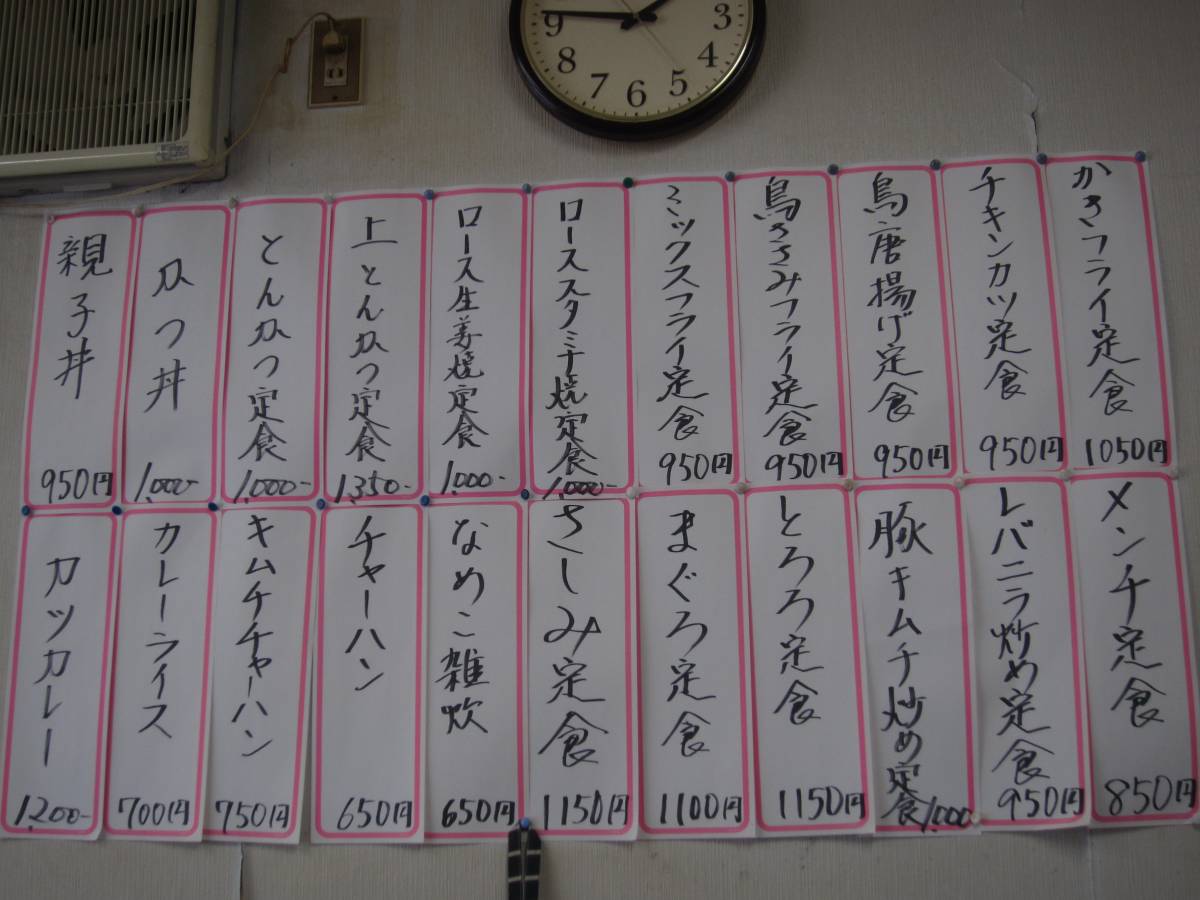 9
8
7
6
5
4
3
かきフライ定食
1050円
チキンカツ定食
950円
鳥唐揚げ定食
950円
鳥ささみフライ定食
950円
ミックスフライ定食
950円
ローススタミナ焼定食
1,000-
ロース生姜焼定食
1,000-
上とんかつ定食
1,350-
とんかつ定食
1,000-
かつ丼
1,000-
親子丼
950円
メンチ定食
850円
レバニラ炒め定食
950円
豚キムチ炒め定食
1,000
とろろ定食
1150円
まぐろ定食
1100円
さしみ定食
1150円
なめこ雑炊
650円
チャーハン
650円
キムチチャーハン
750円
カレーライス
700円
カツカレー
1,200-